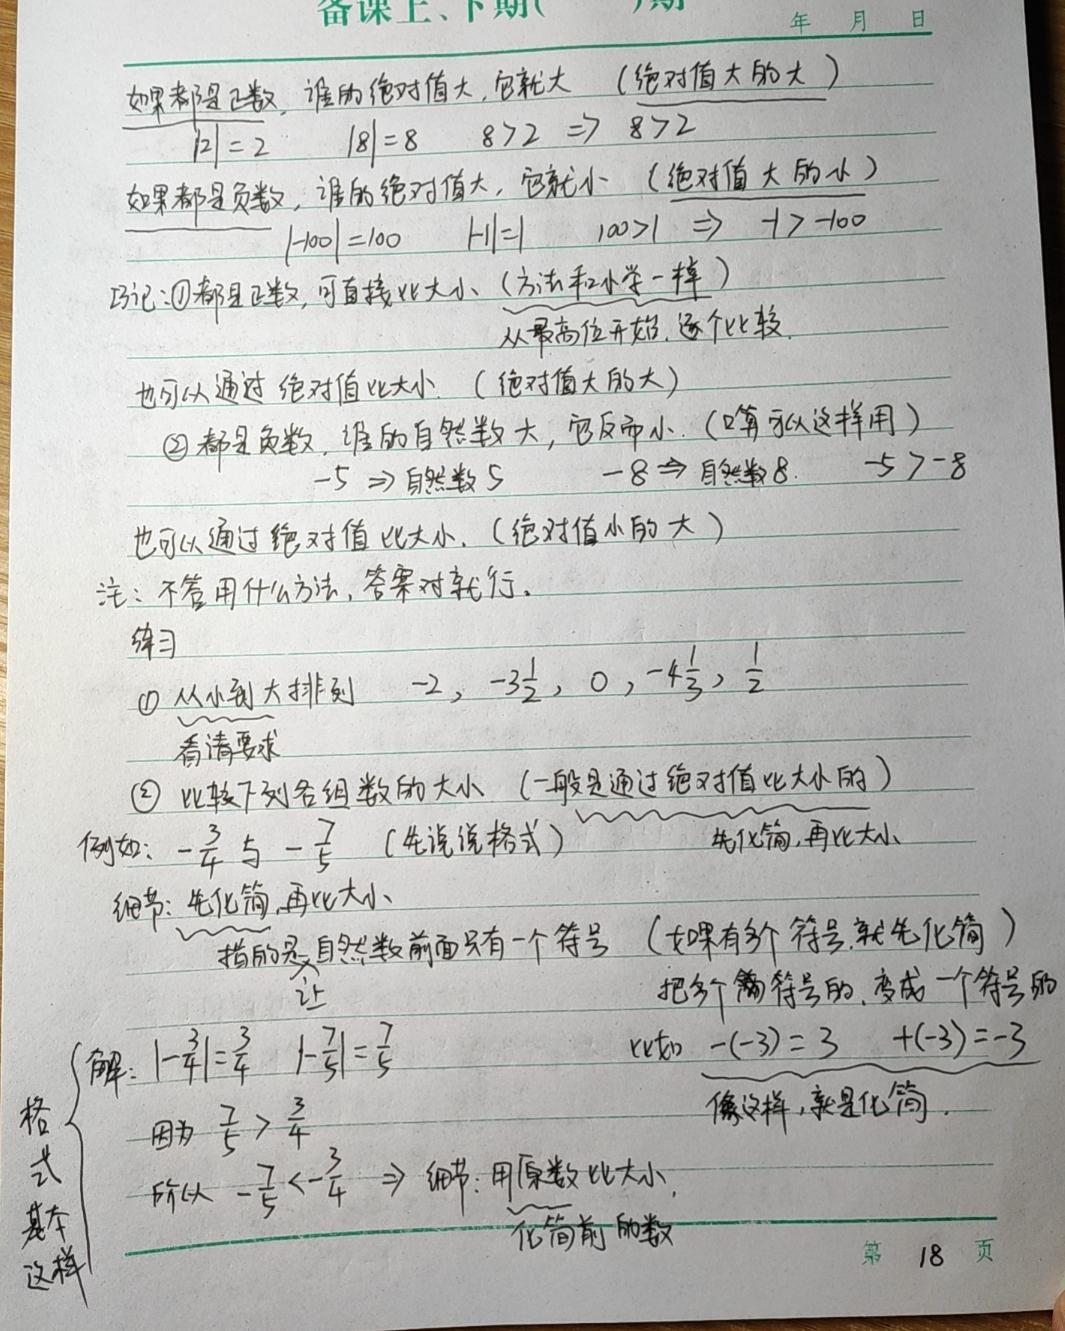 备课上、下期( )期
年 月 日
如果都是正数，谁的绝对值大，它就大 （绝对值大的大）
|2|=2 |8|=8 8>2 ⇒ 8>2
如果都是负数，谁的绝对值大，它就小 （绝对值大的小）
|-100|=100 |-1|=1 100>1 ⇒ -1>-100
巧记：①都是正数，可直接比大小、（方法和小学一样）
从最高位开始，逐个比较.
也可以通过绝对值比大小.（绝对值大的大）
②都是负数，谁的自然数大，它反而小.（口算可以这样用）
-5 ⇒ 自然数5 -8 ⇒ 自然数8. -5>-8
也可以通过绝对值比大小.（绝对值小的大）
注：不管用什么方法，答案对就行。
练习
① 从小到大排列 -2，-3 1/2，0，-4 1/3，1/2
看清要求
② 比较下列各组数的大小（一般是通过绝对值比大小的）
例如：-3/4 与 -7/5 （先说说格式） 先化简，再比大小
细节：先化简，再比大小、
指的是让自然数前面只有一个符号 （如果有多个符号，就先化简）
把多个符号的，变成一个符号的
解：|-3/4|=3/4 |-7/5|=7/5 比如 -(-3)=3 +(-3)=-3
像这样，就是化简.
因为 7/5>3/4
所以 -7/5<-3/4 ⇒ 细节：用原数比大小，
化简前的数
格式基本这样
第 18 页